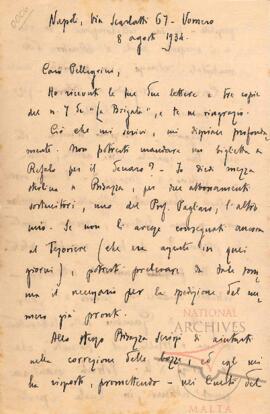 Napoli, Via Scarlatti 67 - Vomero
8 agosto 1934.
Caro Pellegrini,
Ho ricevuto le tue due lettere e tre copie
del n. 7 de "La Brigata", e te ne ringrazio.
Ciò che mi scrivi, mi dispiace profonda
mente. Non potresti mandare un biglietto a
Regalo per il denaro? - Io diedi mezza
sterlina a Bidazza, per due abbonamenti
sostenitori, uno del Prof. Pagliaro, l'altro
mio. Se non li avesse consegnati ancora
al Tesoriere (che era assente in quei
giorni), potresti prelevare da tale som
ma il necessario per la spedizione del nu
mero già pronti.
Allo stesso Bidazza scrissi di aiutarti
nella correzione delle bozze, ed egli mi
ha risposto, promettendo - nei limiti del
NATIONAL
ARCHIVES
MALTA